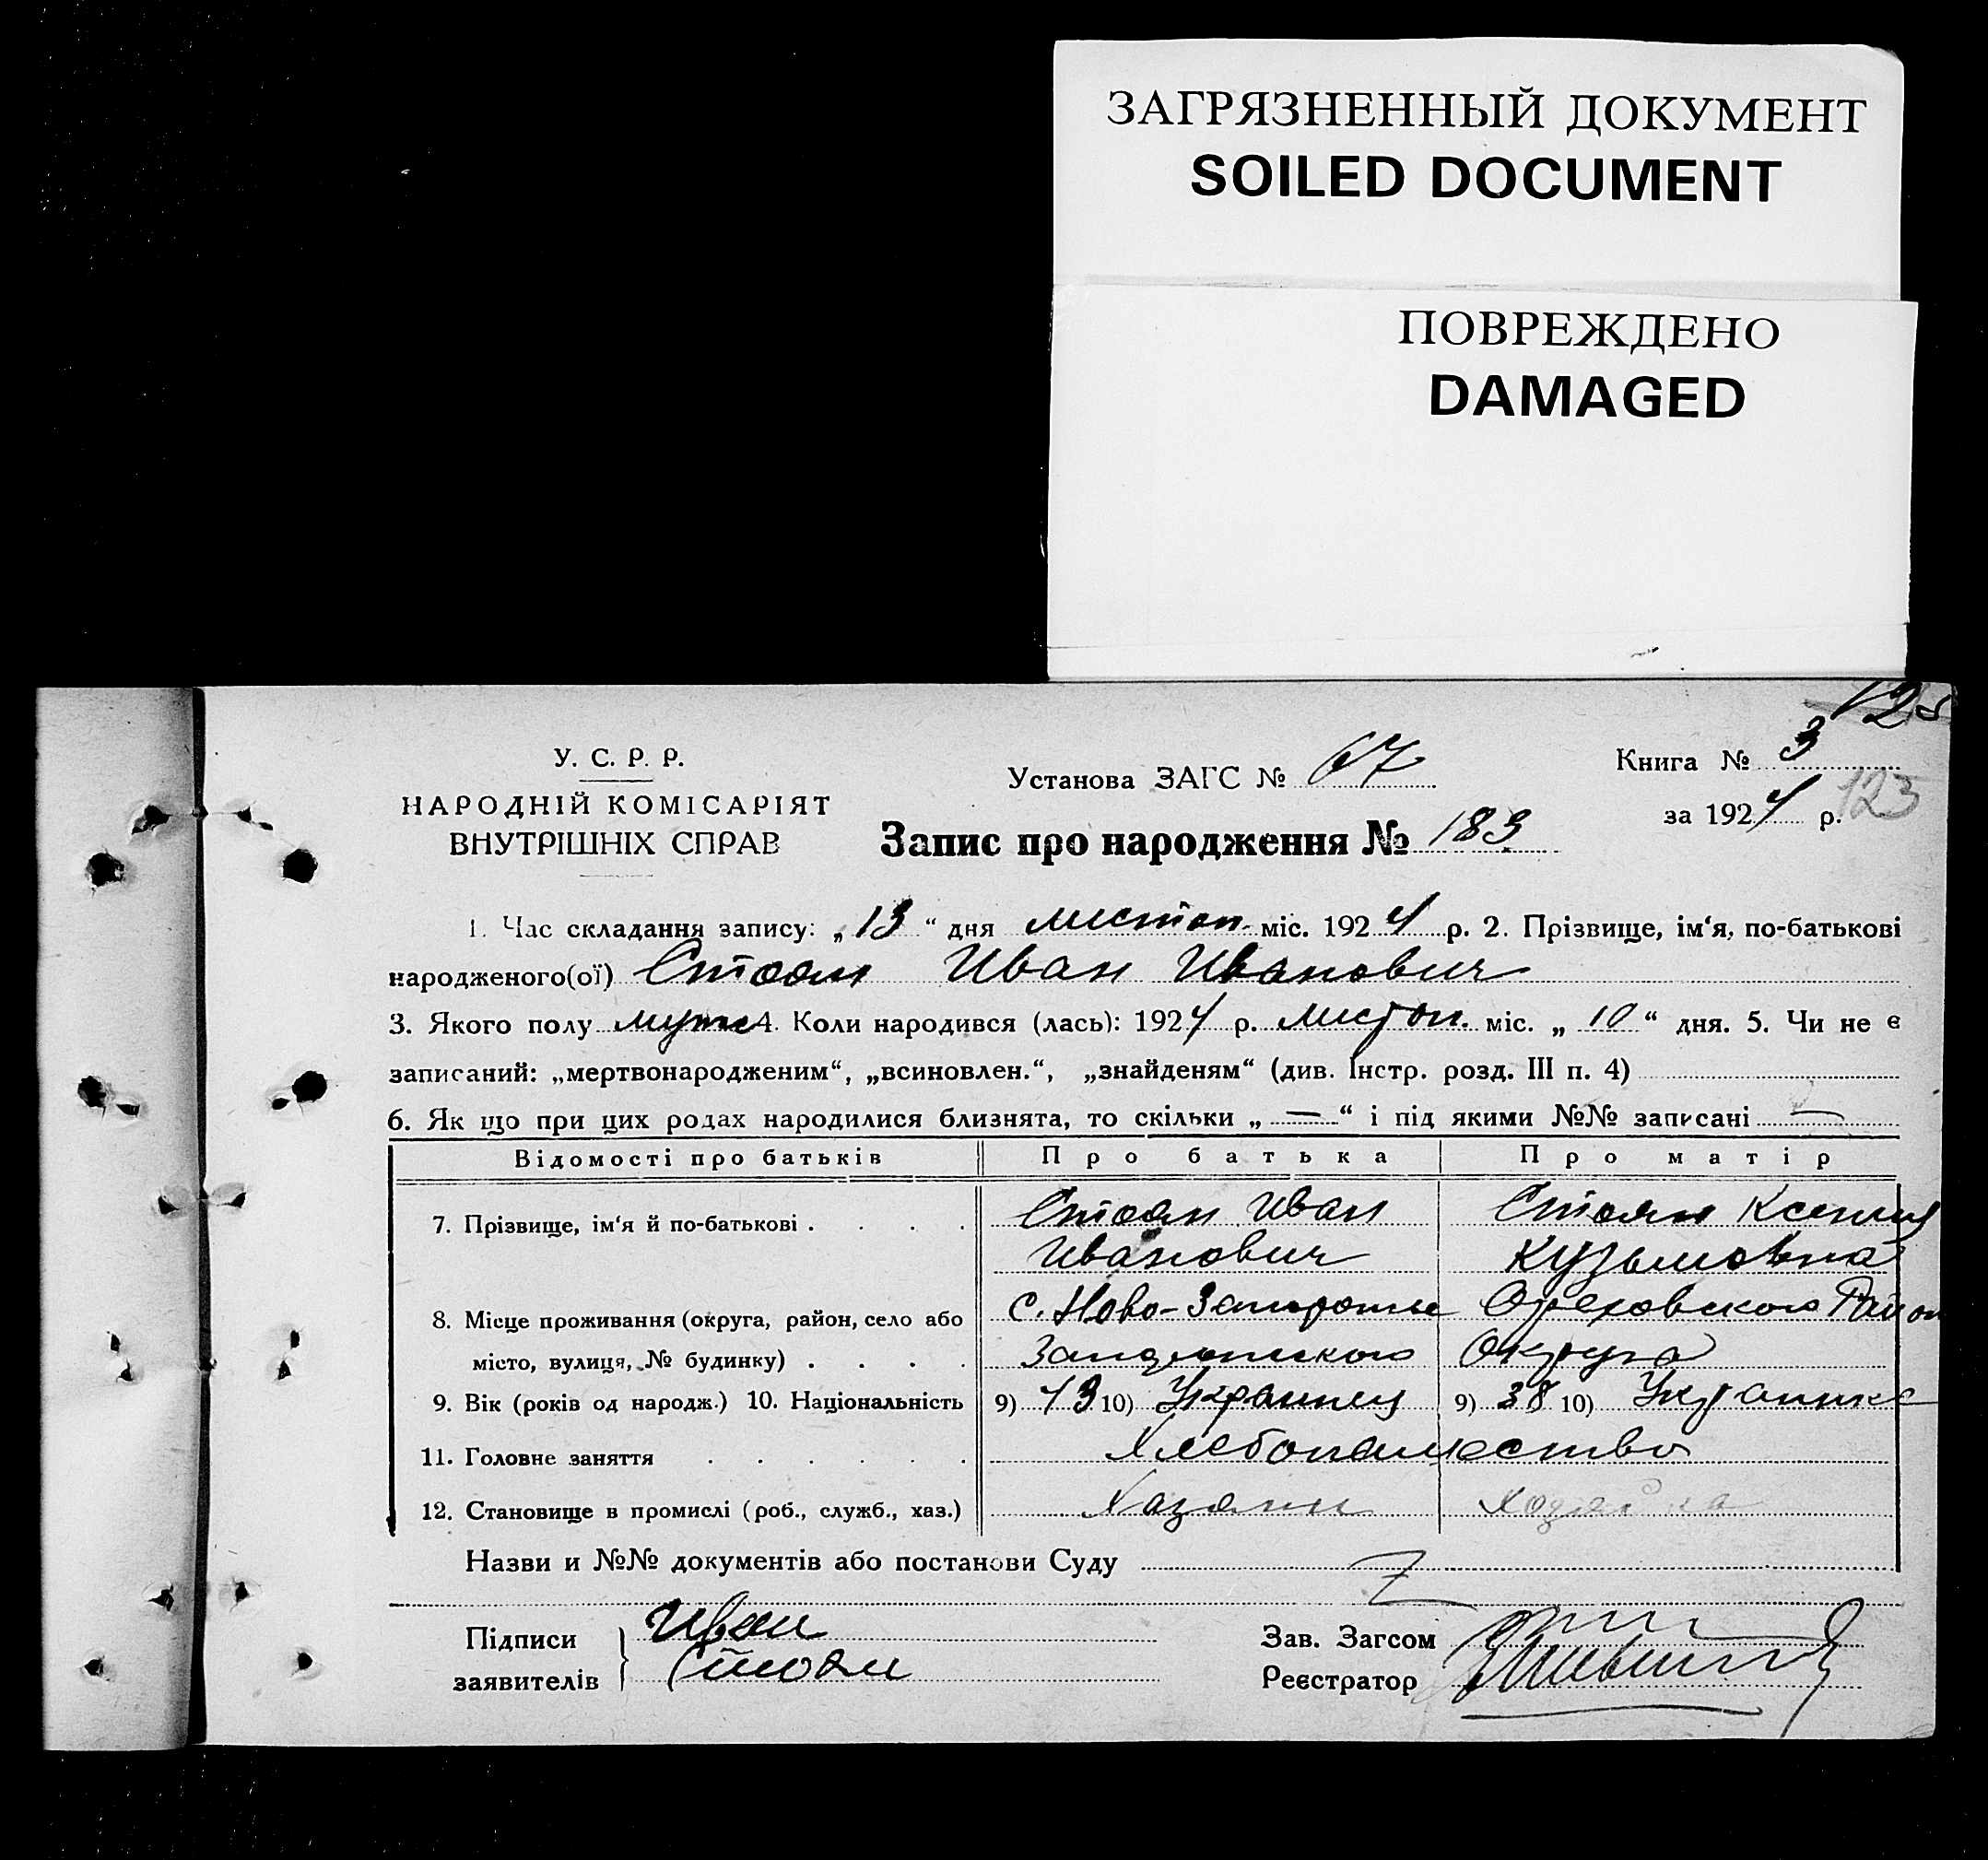 ЗАГРЯЗНЕННЫЙ ДОКУМЕНТ
SOILED DOCUMENT
ПОВРЕЖДЕНО
DAMAGED
У. С. Р. Р.
НАРОДНІЙ КОМІСАРІЯТ
ВНУТРІШНІХ СПРАВ
Установа ЗАГС № 67
Книга № 3
за 1924 р. 123
Запис про народження № 183
1. Час складання запису: „13“ дня листоп. міс. 1924 р. 2. Прізвище, ім‘я, по-батькові
народженого(ої) Стоян Иван Иванович
3. Якого полу муж 4. Коли народився (лась): 1924 р. листоп. міс. „10“ дня. 5. Чи не є
записаний: „мертвонародженим“, „всиновлен.“, „знайденям“ (див. Інстр. розд. III п. 4)
6. Як що при цих родах народилися близнята, то скільки „—“ і під якими №№ записані —
Відомості про батьків Про батька Про матір
7. Прізвище, ім‘я й по-батькові . . . . Стоян Иван Стоян Ксения
Иванович Кузьмовна
8. Місце проживання (округа, район, село або С. Ново- Ореховского Район
місто, вулиця, № будинку) . . . . Округа
9. Вік (років од народж.) 10. Національність 9) 43 10) Украинец 9) 38 10) Украинка
11. Головне заняття . . . . . . Хлебопашество
12. Становище в промислі (роб., служб., хаз.) Хазяин Хозяйка
Назви и №№ документів або постанови Суду
Підписи Иван
заявителів Стоян
Зав. Загсом
Реєстратор